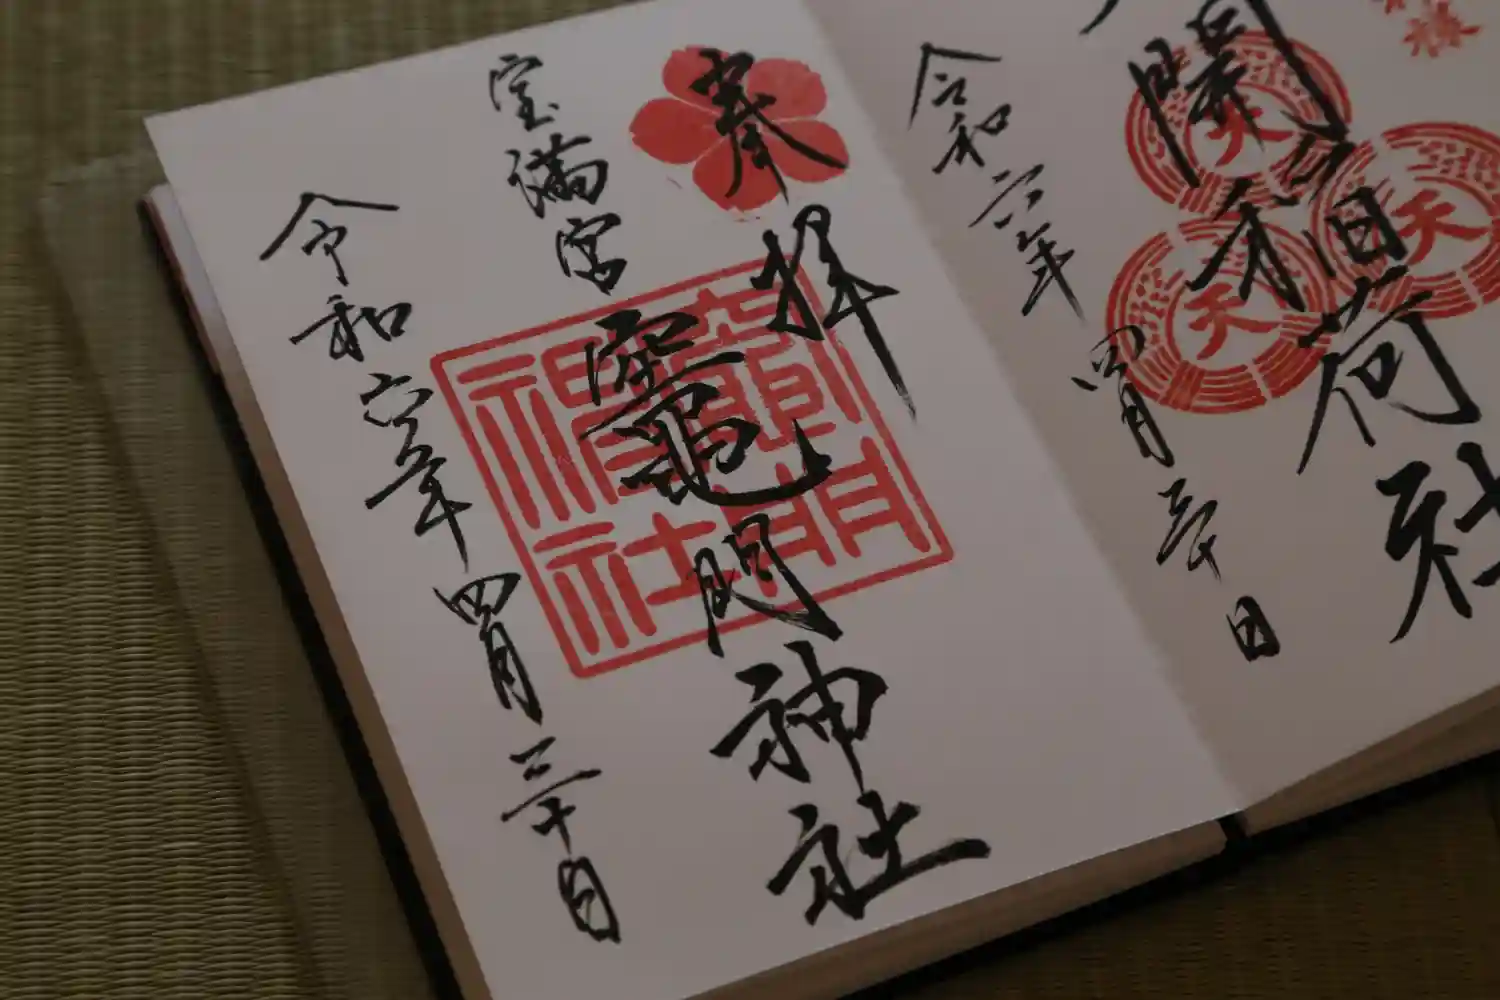 開稲荷社
天
天
天
令和六年四月三十日
奉拝
竈門神社
竈門
神社
宝満宮
令和六年四月三十日